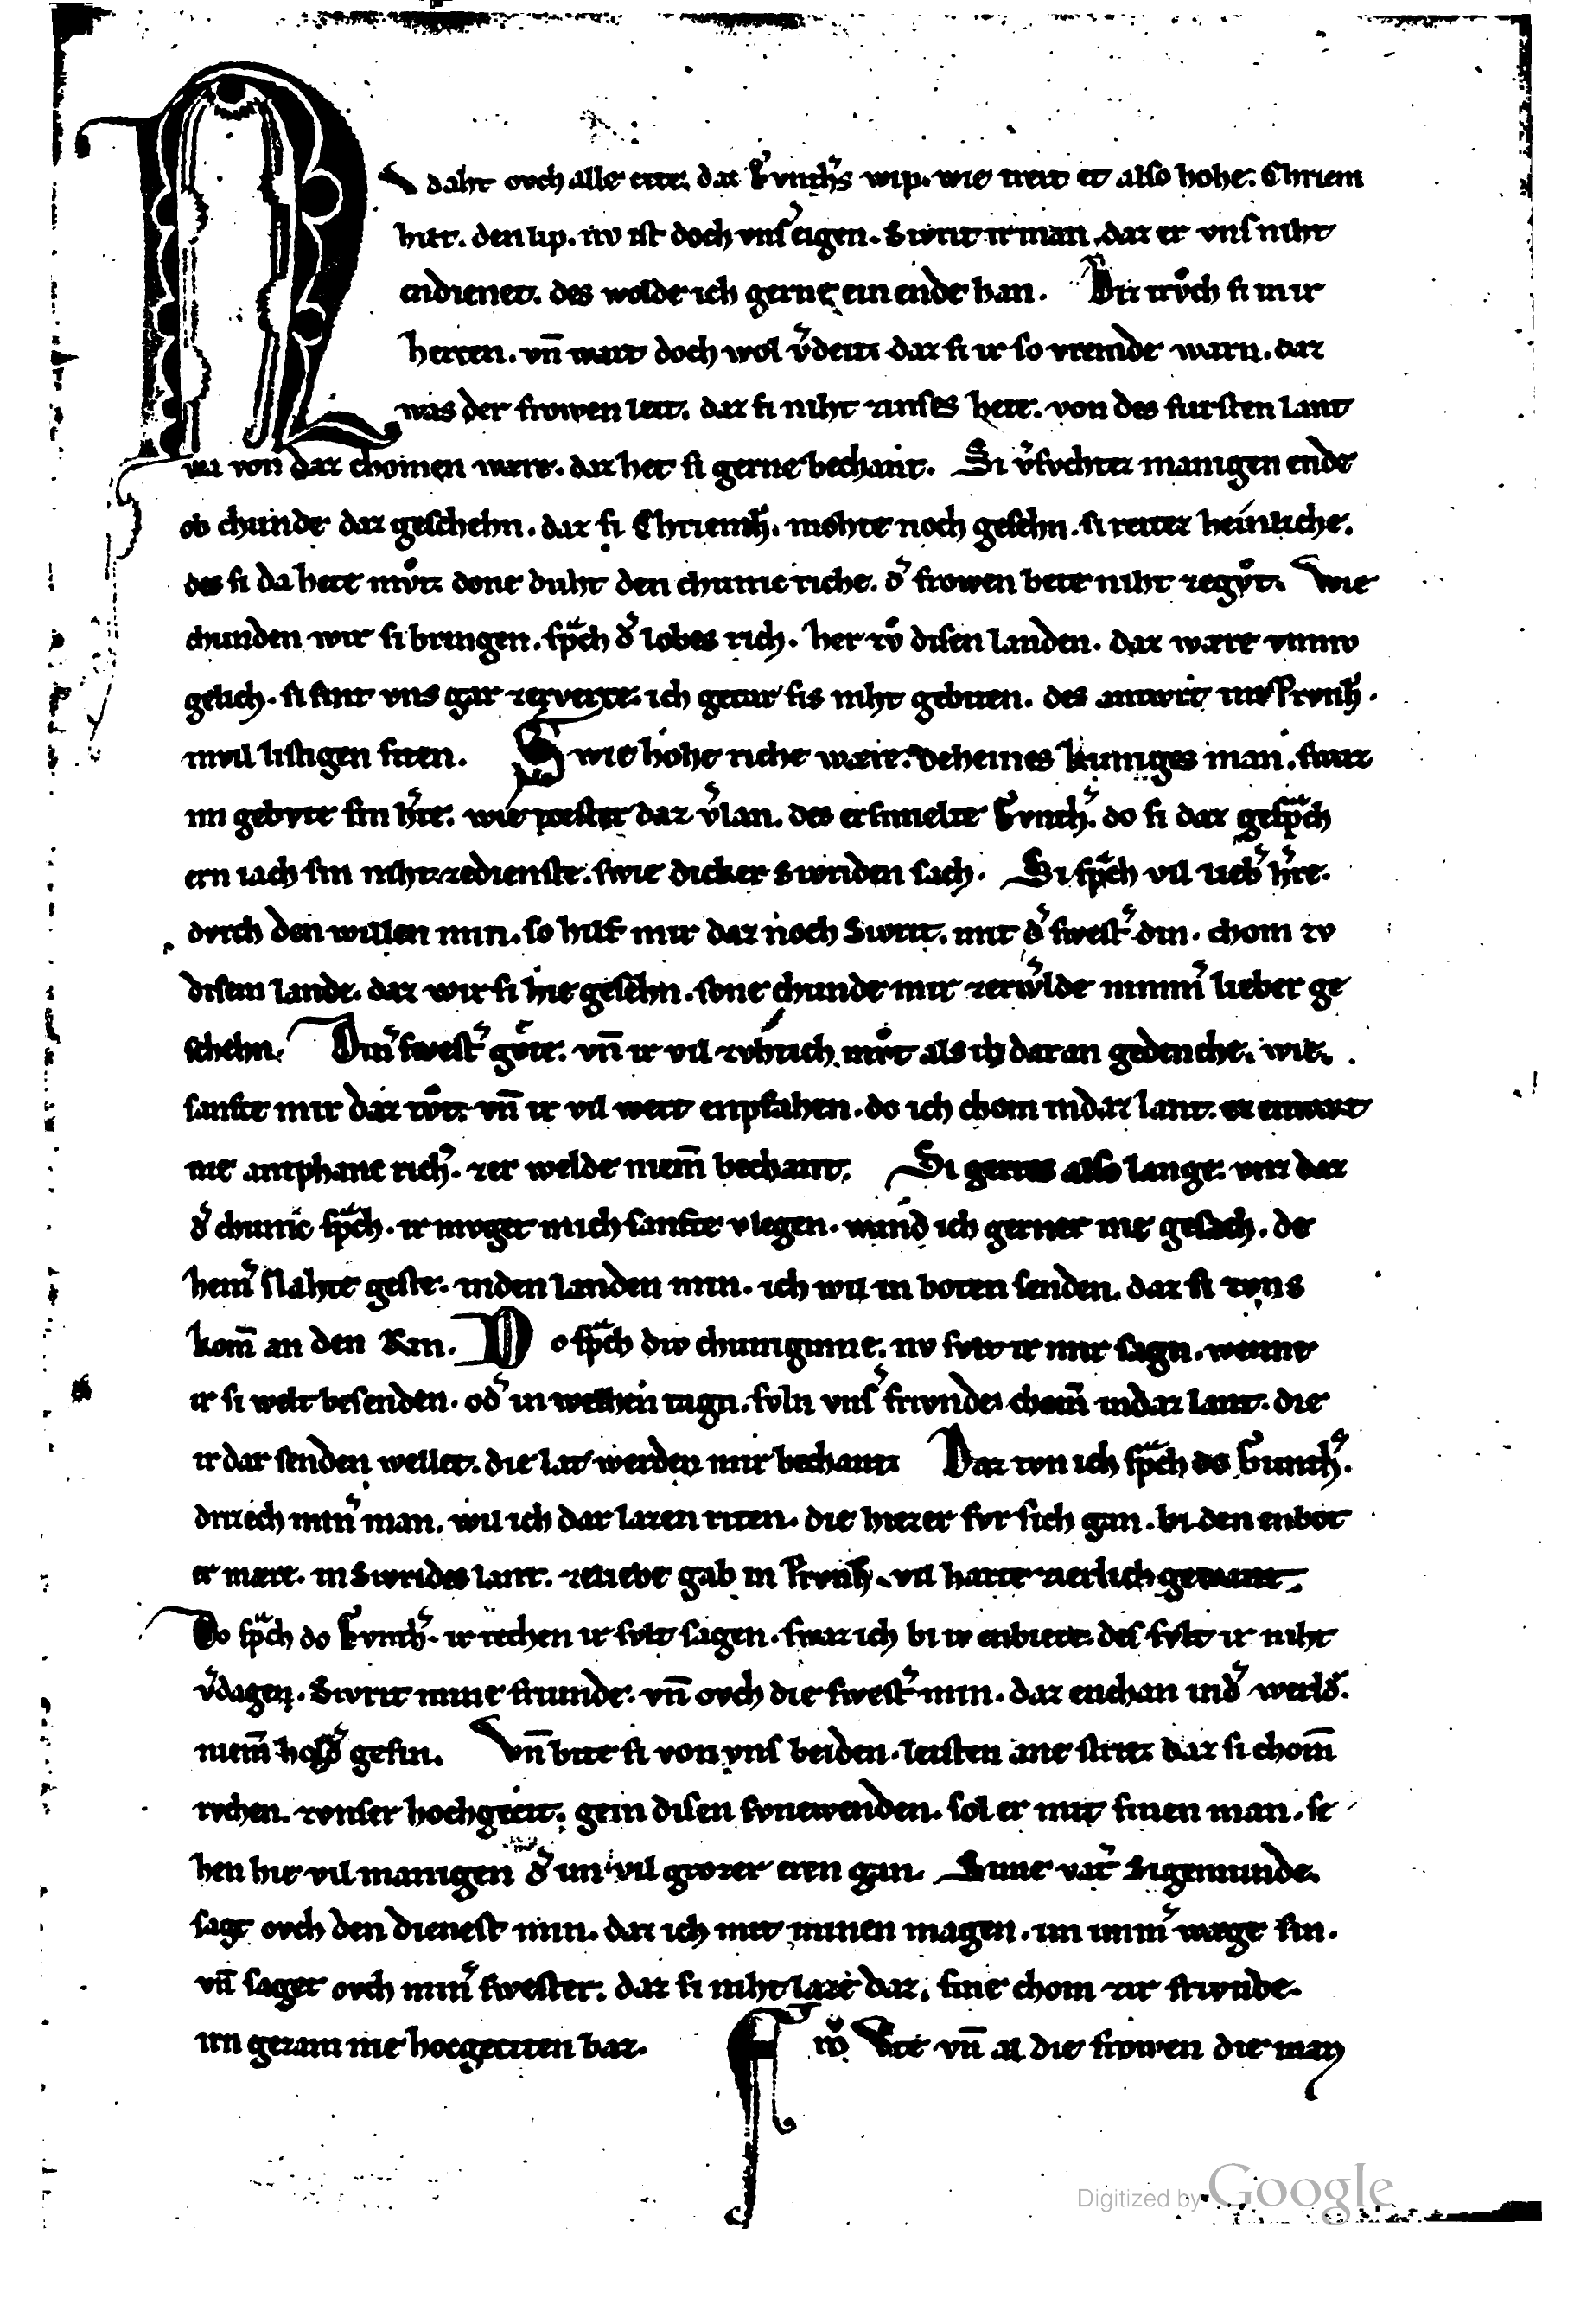 Nv daht ovch alle cite. daz Gvnthͤs wip. wie treit et also hohe. Chriem
hilt. den lip. nv ist doch vnsͤ eigen. Sivrit ir man. daz er vns niht
endienet. des wolde ich gerne ein ende han. Diz trvͦch si in ir
hercen. vn̄ wart doch wol v̓deit. daz si ir so vremde warn. daz
was der frowen leit. daz si niht zinses hete. von des fursten lant
wa von daz chomen wære. daz het si gerne bechant. Si v̓svchtez manigen ende
ob chunde daz geschehn. daz si Chriemh̓. mohte noch gesehn. si reitez heinliche.
des si da hete mvͦt. done duht den chunic riche. d̓ frowen bete niht zegvͦt. Wie
chunden wir si bringen. spͣch d̓ lobes rich. her zvͦ disen landen. daz wære vnmv
gelich. si sint vns gar zerverre. ich getar sis niht gebiten. des antwrt im Prvnh̓.
in vil listigen siten. Swie hohe riche wære. deheines kuniges man. swaz
im gebvte sin hr̓e. wie wester daz v̓lan. des ersmielte Gvnth̓. do si daz gespͣch
ern iach sin niht zedienste. swie dicker Sivriden sach. Si spͣch vil lieb̓ hr̓e.
dvrch den willen min. so hilf mir daz noch Sivrit. mit d̓ swest̓ din. chom zv
disem lande. daz wir si hie gesehn. sone chunde mir zerwͤlde nimm̓ lieber ge
schehn. Din̓ swest̓ gvͤte. vn̄ ir vil zvhtich mvͦt als ich dar an gedenche. wie
sanfte mir daz tvͦt. vn̄ ir vil wert enpfahen. do ich chom indaz lant. ez enwart
nie antphanc rich̓. zer welde niem̄ bechant. Si gertes also lange. vnz daz
d̓ chunic spͣch. ir mvget mich sanfte vlegen. wand ich gerner nie gesach. de
hein̓ slahte geste. inden landen min. ich wil in boten senden. daz si zvns
kom̄ an den Rin. Do spͣch div chuniginne. nv svlt ir mir sagn. wenne
ir si welt besenden. od̓ in welhen tagn. svln vns̓ frivnde chom̄ indaz lant. die
ir dar senden wellet. die lat werden mir bechant. Daz tvn ich spͣch do Gunth̓.
drizech min̓ man. wil ich dar lazen riten. die hiezer fvr sich gan. bi den enbot
er mære. in Sivrides lant. zeliebe gab in Prvnh̓. vil harte zierlich gewant.
Do spͣch do Gvnth̓. ir rechen ir svlt sagen. swaz ich bi iv enbiete. des svlt ir niht
v̓dagen. Sivrit mine friunde. vn̄ ovch die swest̓ min. daz enchan ind̓ werld̓.
niem̄ hold̓ gesin. Vn̄ bite si von vns beiden. leisten ane strit. daz si chom̄
rvchen. zvnser hochgecit. gein disen svnewenden. sol er mit sinen man. se
hen hie vil manigen d̓ im vil grozer eren gan. Sime vat̓ Sigemunde.
sagt ovch den dienest min. daz ich mit minen magen. im imm̓ wæge sin.
vn̄ saget ovch min̓ swester. daz si niht laze daz. sine chom zir frivnde.
irn gezam nie hocgeciten baz. Frvͦ Vte vn̄ al die frowen die man
Digitized by Google